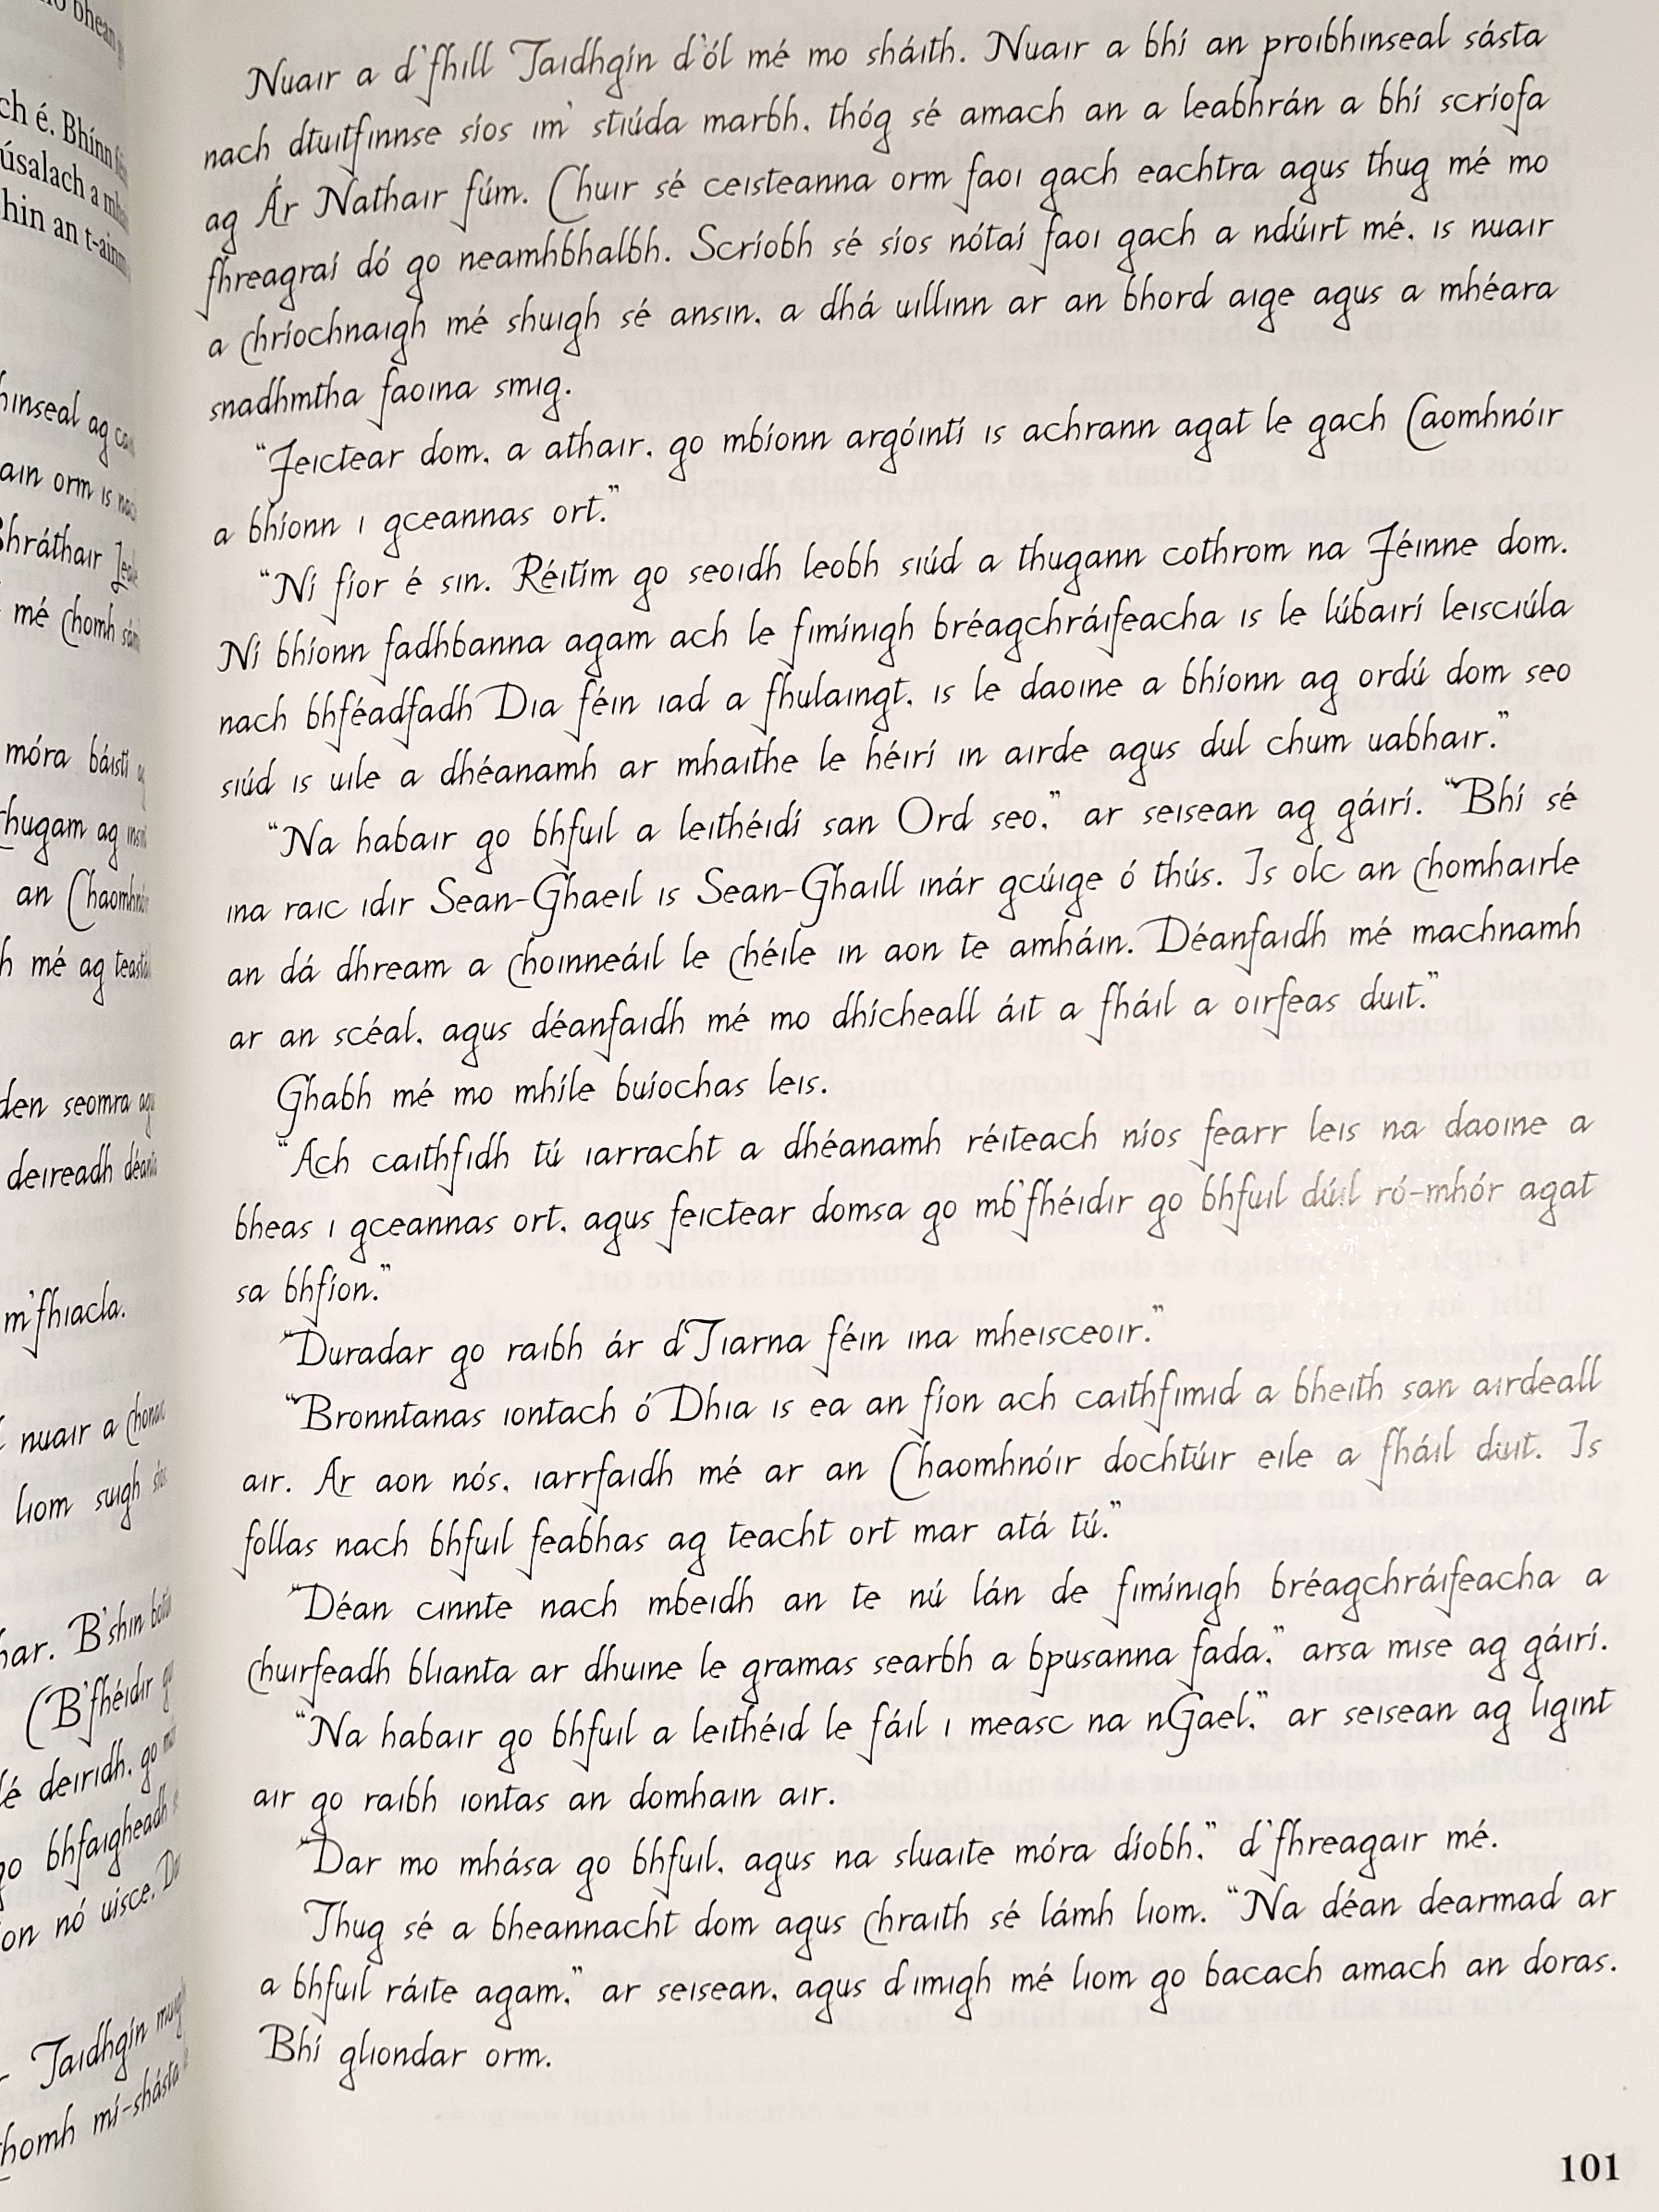 Nuair a d'fhill Taidhgín d'ól mé mo sháith. Nuair a bhí an proibhinseal sásta
nach dtuitfinnse síos im' stiúda marbh, thóg sé amach an a leabhrán a bhí scríofa
ag Ár Nathair fúm. Chuir sé ceisteanna orm faoi gach eachtra agus thug mé mo
fhreagraí dó go neamhbhalbh. Scríobh sé síos nótaí faoi gach a ndúirt mé, is nuair
a chríochnaigh mé shuigh sé ansin, a dhá uillinn ar an bhord aige agus a mhéara
snadhmtha faoina smig.
"Feictear dom, a athair, go mbíonn argóintí is achrann agat le gach Caomhnóir
a bhíonn i gceannas ort."
"Ní fíor é sin. Réitím go seoidh leobh siúd a thugann cothrom na Féinne dom.
Ní bhíonn fadhbanna agam ach le fimínigh bréagchráifeacha is le lúbairí leisciúla
nach bhféadfadh Dia féin iad a fhulaingt, is le daoine a bhíonn ag ordú dom seo
siúd is uile a dhéanamh ar mhaithe le héirí in airde agus dul chum uabhair."
"Na habair go bhfuil a leithéidí san Ord seo," ar seisean ag gáirí. "Bhí sé
ina raic idir Sean-Ghaeil is Sean-Ghaill inár gcúige ó thús. Is olc an chomhairle
an dá dhream a choinneáil le chéile in aon te amháin. Déanfaidh mé machnamh
ar an scéal, agus déanfaidh mé mo dhícheall áit a fháil a oirfeas duit."
Ghabh mé mo mhíle buíochas leis.
"Ach caithfidh tú iarracht a dhéanamh réiteach níos fearr leis na daoine a
bheas i gceannas ort, agus feictear domsa go mb'fhéidir go bhfuil dúil ró-mhór agat
sa bhfíon."
"Duradar go raibh ár dTiarna féin ina mheisceoir."
"Bronntanas iontach ó Dhia is ea an fíon ach caithfimid a bheith san airdeall
air. Ar aon nós, iarrfaidh mé ar an Chaomhnóir dochtúir eile a fháil duit. Is
follas nach bhfuil feabhas ag teacht ort mar atá tú."
"Déan cinnte nach mbeidh an te nú lán de fimínigh bréagchráifeacha a
chuirfeadh blianta ar dhuine le gramas searbh a bpusanna fada," arsa mise ag gáirí.
"Na habair go bhfuil a leithéid le fáil i measc na nGael," ar seisean ag ligint
air go raibh iontas an domhain air.
"Dar mo mhása go bhfuil, agus na sluaite móra díobh," d'fhreagair mé.
Thug sé a bheannacht dom agus chraith sé lámh liom. "Na déan dearmad ar
a bhfuil ráite agam," ar seisean, agus d'imigh mé liom go bacach amach an doras.
Bhí gliondar orm.
101
ch é. Bhínn
úsalach a
hin an t-ainm
ag
orm is
mé chomh
móra báistí
chugam ag
an Chaomhnóir
mé ag
den seomra
deireadh
m'fhiacla.
nuair a
liom suigh
B'shin
(B'fhéidir
deiridh, go
bhfaigheadh
nó uisce.
Taidhgín
mí-shásta